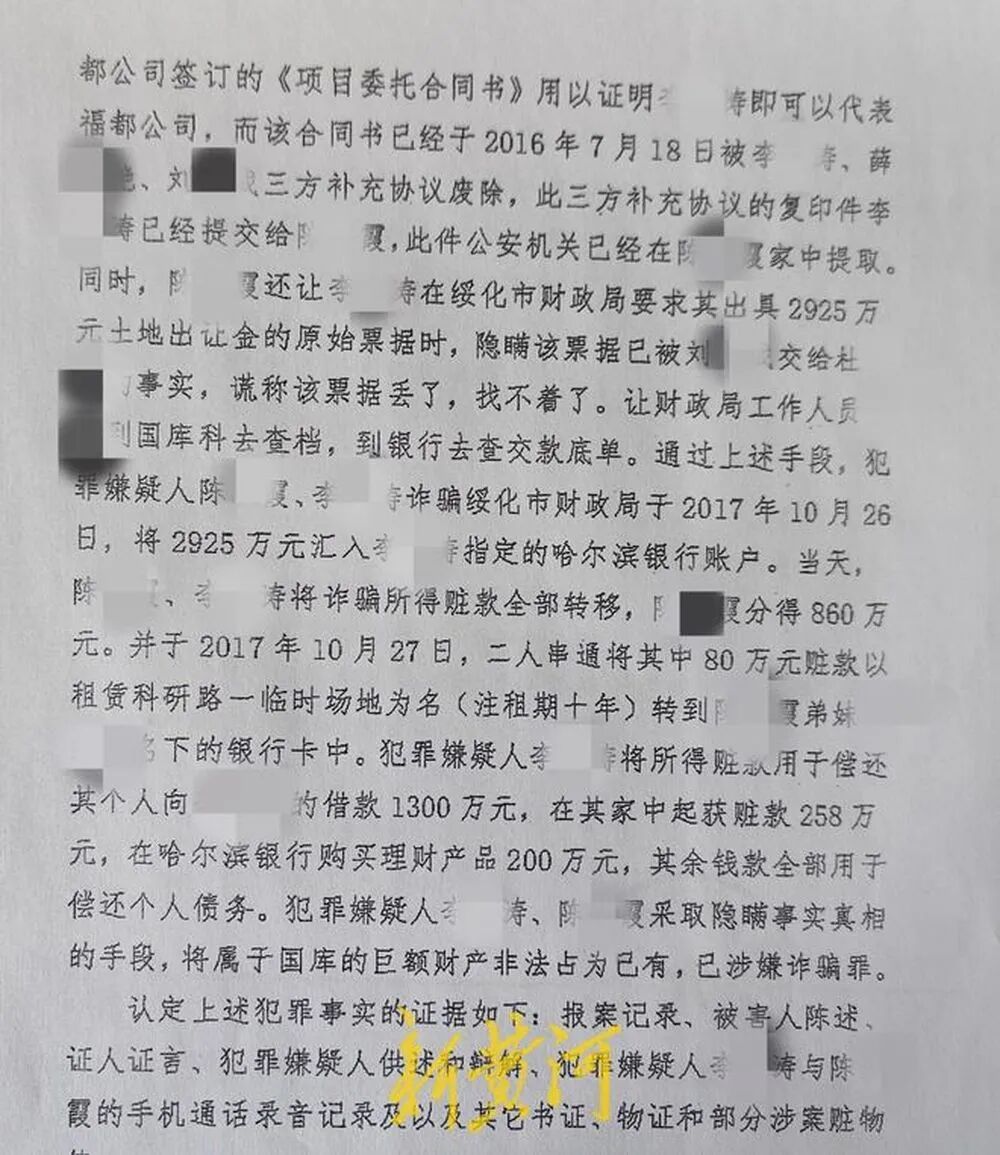 都公司签订的《项目委托合同书》用以证明李 涛即可以代表
福都公司，而该合同书已经于2016年7月18日被李 涛、薛
艳、刘 三方补充协议废除，此三方补充协议的复印件李
涛已经提交给陈 霞，此件公安机关已经在陈 霞家中提取。
同时，陈 霞还让李 涛在绥化市财政局要求其出具2925万
元土地出让金的原始票据时，隐瞒该票据已被刘 交给杜
事实，谎称该票据丢了，找不着了。让财政局工作人员
到国库科去查档，到银行去查交款底单。通过上述手段，犯
罪嫌疑人陈 霞、李 涛诈骗绥化市财政局于2017年10月26
日，将2925万元汇入李 涛指定的哈尔滨银行账户。当天，
陈 霞、李 涛将诈骗所得赃款全部转移，陈 霞分得860万
元。并于2017年10月27日，二人串通将其中80万元赃款以
租赁科研路一临时场地为名（注租期十年）转到陈 霞弟妹
名下的银行卡中。犯罪嫌疑人李 涛将所得赃款用于偿还
其个人向 的借款1300万元，在其家中起获赃款258万
元，在哈尔滨银行购买理财产品200万元，其余钱款全部用于
偿还个人债务。犯罪嫌疑人李 涛、陈 霞采取隐瞒事实真相
的手段，将属于国库的巨额财产非法占为已有，已涉嫌诈骗罪。
认定上述犯罪事实的证据如下：报案记录、被害人陈述、
证人证言、犯罪嫌疑人供述和辩解、犯罪嫌疑人李 涛与陈
霞的手机通话录音记录及以及其它书证、物证和部分涉案赃物
新黄河